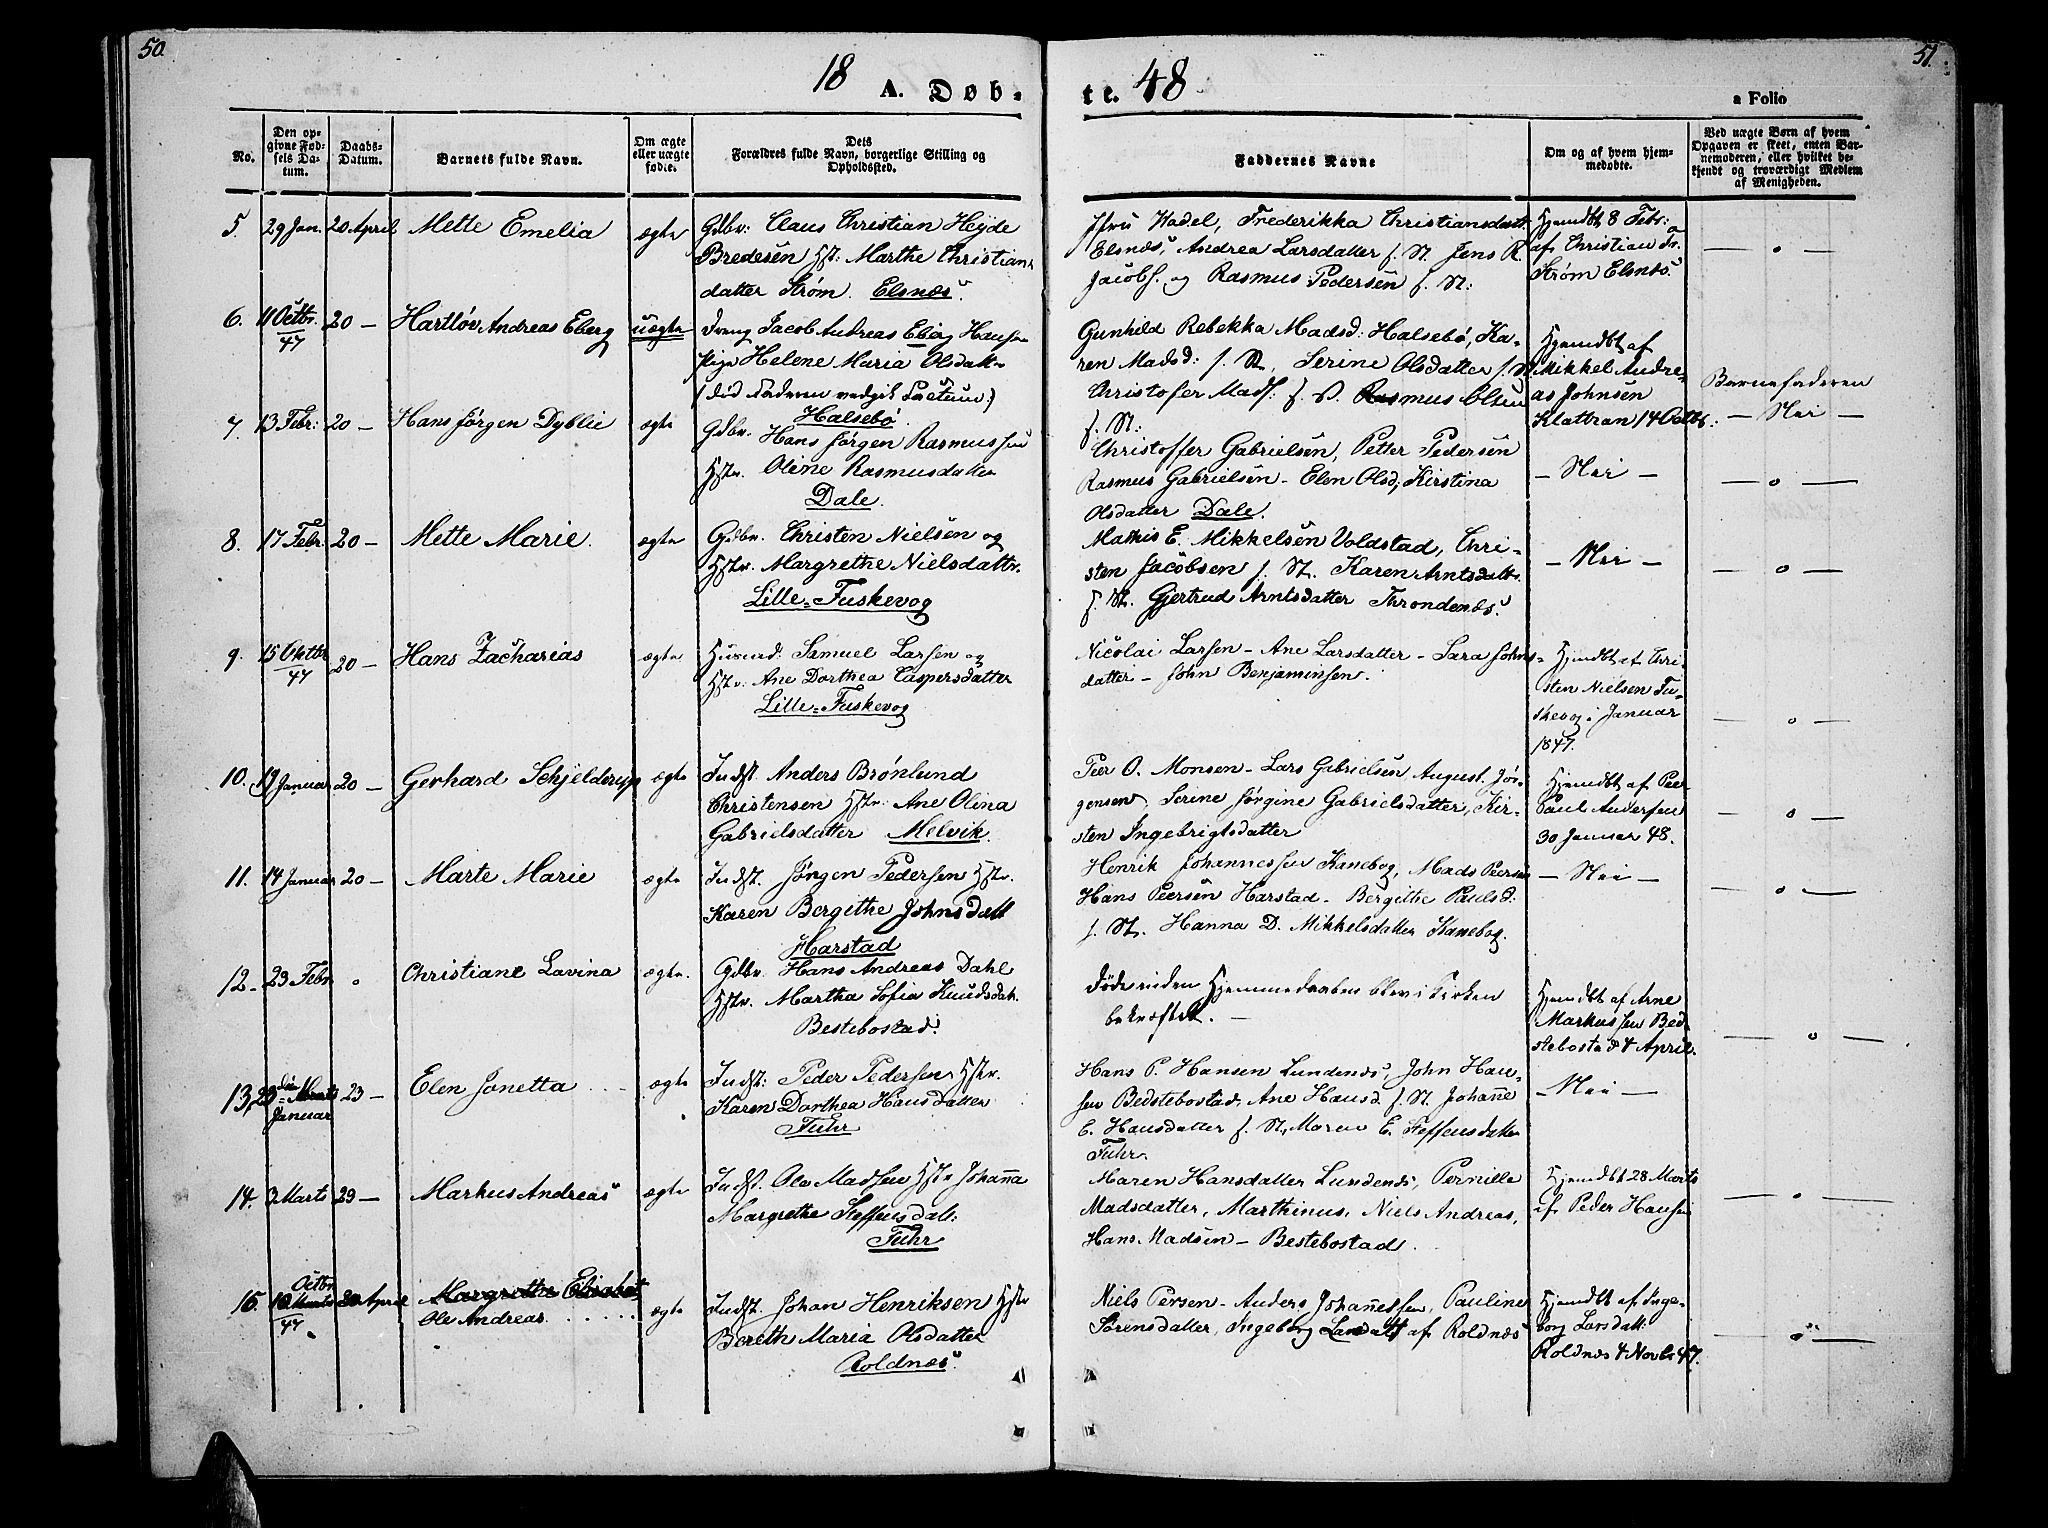 50.
51.
18 A. Døb-
te. 48
a Folio
No.
Den op-
givne Fød-
sels Da-
tum.
Daabs-
Datum.
Barnets fulde Navn.
Om ægte
eller uægte
fød.e.
Dets
Forældres fulde Navn, borgerlige Stilling og
Opholdssted.
Faddernes Navne
Om og af hvem hjem-
medøbte.
Ved uægte Børn af hvem
Opgaven er skeet, enten Bar-
nemoderen, eller hvilket be-
kjendt og troværdigt Medlem
af Menigheden.
5. 29 Jan. 20 April Mette Emelia ægte Gdbr: Claus Christian Heyde
Bredesen Hst: Marthe Christian
datter Strøm. Elsnæs.
Jfru Hadel, Frederikka Christiansdatt
Elsnæs, Andrea Larsdatter f. St. Jens R.
Jacobs. og Rasmus Pedersen f. St:
Hjemdbt 8 Febr:
af Christian Fr.
Strøm Elsnæs.
— o —
6. 11 Octbr. 47 20 — Hartløv Andreas Eberg uægte Dreng Jacob Andreas Eberg Hansen
Pige Helene Maria Olsdatt
Halsebø
Gunhild Rebekka Madsd: Halsebø, Ka-
ren Madsd: f. St., Serine Olsdatter f. St
Christofer Mads. f. S. Rasmus Olsen
f. St:
Hjemdbt af
Mikkel Andre-
as Johnsen
Klattran 14 Octbr.
Barnefaderen
— Nei —
7. 13 Febr: 20 — Hans Jørgen Dyblie ægte Gdbr. Hans Jørgen Rasmussen
Hstr. Oline Rasmusdatter
Dale.
Christoffer Gabrielsen, Petter Pedersen
Rasmus Gabrielsen - Elen Olsd, Kirstina
Olsdatter Dale.
— Nei —
— o —
8. 17 Febr. 20 — Mette Marie. ægte Gdbr. Christen Nielsen og
Hstr. Margrethe Nielsdattr.
Lille-Fuskevog
Mathis E. Mikkelsen Voldstad, Chri-
sten Jacobsen f. St. Karen Arntsdatt.
f. St. Gjertrud Arntsdatter Throndenæs.
— Nei —
— o —
9. 15 Oktbr 47 20 — Hans Zacharias ægte Husmd: Samuel Larsen og
Hstr: Ane Dorthea Caspersdatter
Lille-Fuskevog
Nicolai Larsen - Ane Larsdatter - Sara Johns-
datter - John Benjaminsen.
Hjemdbt af Chri-
sten Nielsen Fu-
skevog i Januar
1847.
— o —
10. 19 Januar 20 — Gerhard Schjelderup ægte Indst. Anders Brønlund
Christensen Hstr: Ane Olina
Gabrielsdatter Melvik.
Peer O. Monsen - Lars Gabrielsen August. Jør-
gensen, Serine Jørgine Gabrielsdatter, Kir-
sten Ingebrigtsdatter
Hjemdbt af Peer
Paul Andersen
30 Januar 48.
— o —
11. 14 Januar 20 — Marte Marie ægte Indst. Jørgen Pedersen Hstr.
Karen Bergithe Johnsdatt
Harstad
Henrik Johannessen Kanebog, Mads Peersen
Hans Peersen Harstad - Bergitte Paulsd:
f. St. Hanna D. Mikkelsdatter Kanebog.
— Nei —
— o —
12. 23 Febr. Christiane Lavina ægte. Gdbr. Hans Andreas Dahl
Hstr. Martha Sofia Knudsdatt.
Bestebostad.
Døde inden Hjemmedaaben blev i Kirken
bekræftet. —
Hjemdbt af Arne
Markussen Bed-
stebostad 4 April.
— o —
13. 23 Januar 23 — Elen Jonetta ægte Indst: Peder Pedersen Hstr.
Karen Dorthea Hansdatter
Fuhr
Hans P. Hansen Lundenæs, John Han-
sen Bedstebostad, Ane Hansd. f. St. Johanne
E. Hansdatter f. St., Maren E. Steffensdatter
Fuhr.
— Nei —
14. 3 Marts 29 — Markus Andreas ægte Indst. Ole Madsen Hstr Johanna
Margrethe Steffensdatt:
Fuhr
Maren Hansdatter Lundenæs, Pernille
Madsdatter, Marthinus, Niels Andreas,
Hans Madsen - Bestebostad.
Hjemdbt 28 Marts
af Peder Hansen
— o —
15. Octbr 10 Marts 47 20 April Margrethe Elisabet
Ole Andreas. ægte Indst. Johan Henriksen Hstr
Bereth Maria Olsdatter
Roldnæs.
Niels Persen - Anders Johannessen, Pauline
Sørensdatter, Ingeborg Larsdatt af Roldnæs
Hjemdbt af Inge-
borg Larsdatt.
Roldnæs 4 Novbr 47.
— o —